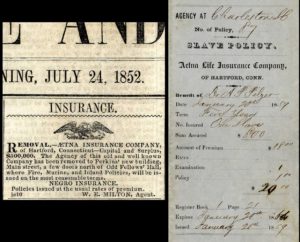 E AND
NING, JULY 24, 1852.
INSURANCE.
REMOVAL.—ÆTNA INSURANCE COMPANY,
of Hartford, Connecticut—Capital and Surplus,
$300,000. The Agency of this old and well known
Company has been removed to Perkins' new building,
Main street, a few doors north of Old Fellows' Hall,
where Fire, Marine, and Inland Policies, will be is-
sued on the most reasonable terms.
NEGRO INSURANCE.
Policies issued at the usual rates of premium.
W. E. MILTON, Agent.
AGENCY AT Charleston
No. of Policy, 87
SLAVE POLICY.
Aetna Life Insurance Company,
OF HARTFORD, CONN.
Branch of
Date January 20th 1859
Term
No. Insured One Slave
Sum Assured $800
Amount of Premium
Extra
Examination 1
Policy 1
$20.00
Register Book 1 Page 21
Expires January 20th
Issued January 20th 1859